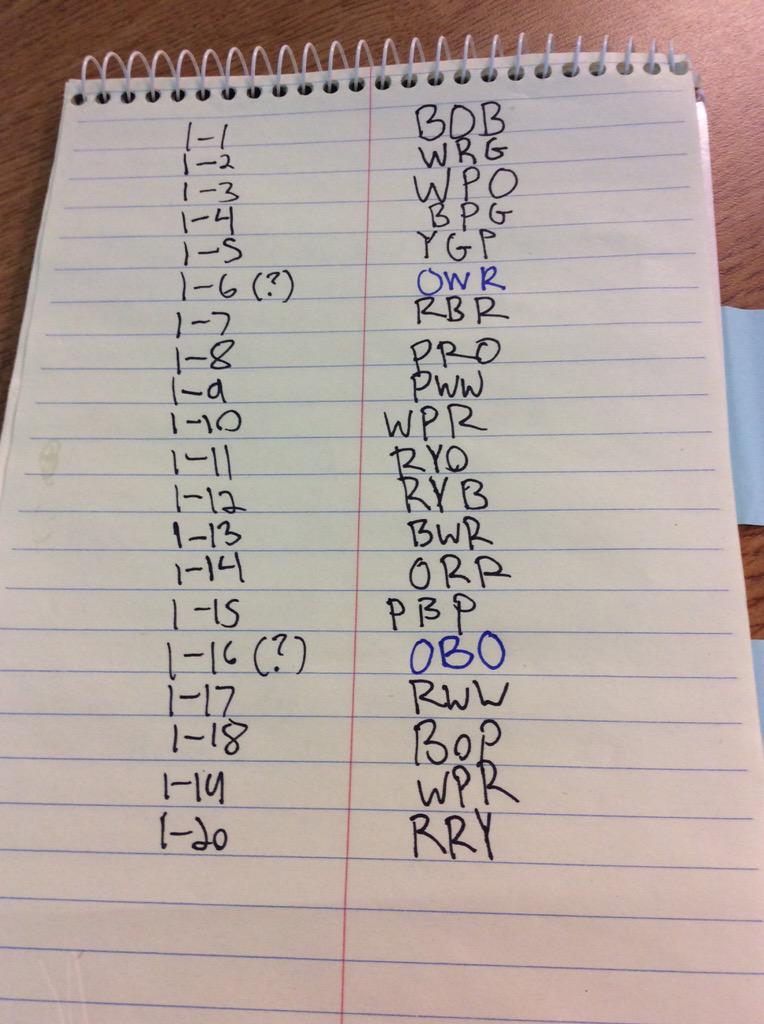 1-1 BOB
1-2 WRG
1-3 WPO
1-4 BPG
1-5 YGP
1-6 (?) OWR
1-7 RBR
1-8 PRO
1-9 PWW
1-10 WPR
1-11 RYO
1-12 RYB
1-13 BWR
1-14 ORR
1-15 PBP
1-16 (?) OBO
1-17 RWW
1-18 BOP
1-19 WPR
1-20 RRY